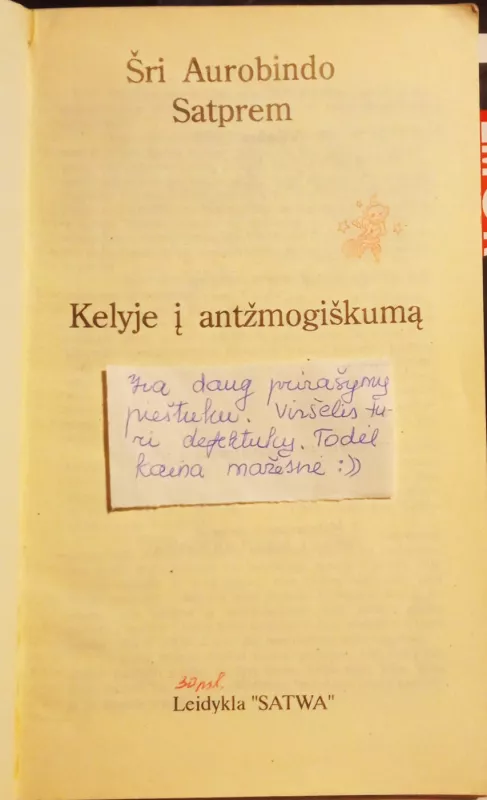 Šri Aurobindo
Satprem
Kelyje į antžmogiškumą
Yra daug prirašymų
pieštuku. Viršelis tu-
ri defektukų. Todėl
kaina mažesnė :))
30 psl.
Leidykla "SATWA"